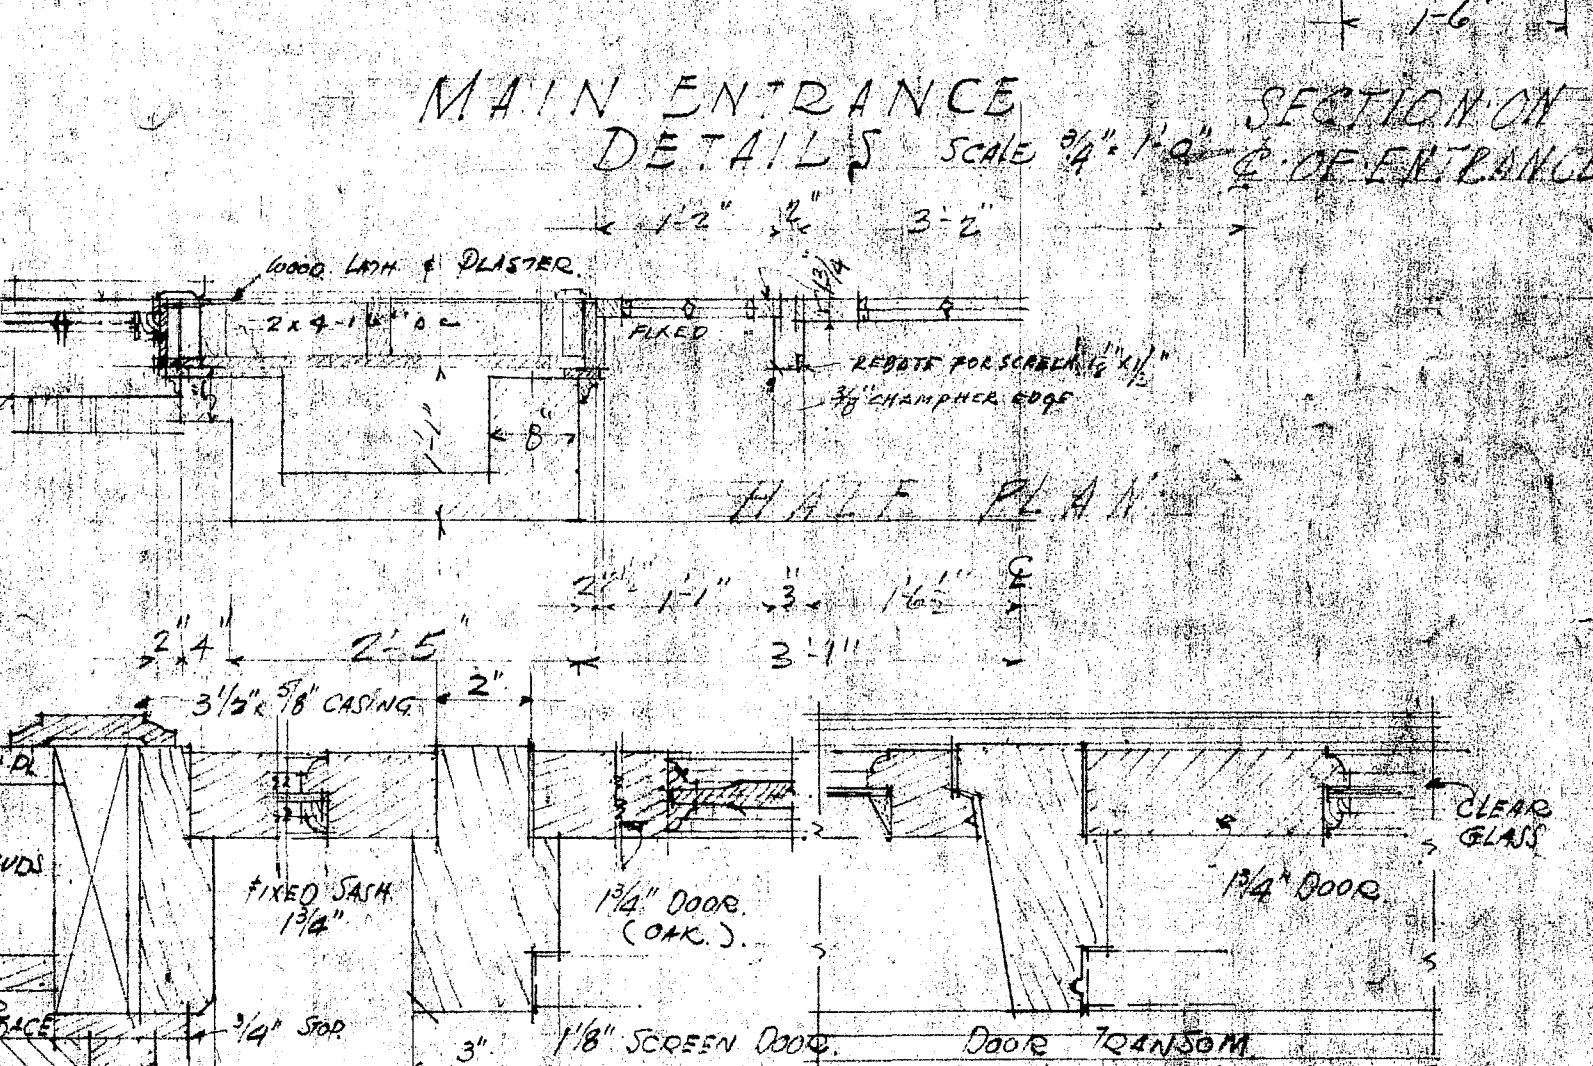 1'-6"
MAIN ENTRANCE
DETAILS SCALE 3/4" = 1'-0"
SECTION ON
℄ OF ENTRANCE
1'-2" 2" 3'-2"
WOOD LATH & PLASTER.
1 3/4
FIXED
REBATE FOR SCREEN
3/8" CHAMPHER EDGE
8"
HALF PLAN
1'-1" 3" 1'-6 1/2" ℄
2" 4" 2'-5" 3'-1"
3 1/2" x 5/8" CASING 2"
PL
CLEAR
GLASS
UDS
FIXED SASH
1 3/4"
1 3/4" DOOR.
(OAK.).
1 3/4" DOOR.
3/4" STOP.
3" 1 1/8" SCREEN DOOR. DOOR TRANSOM.